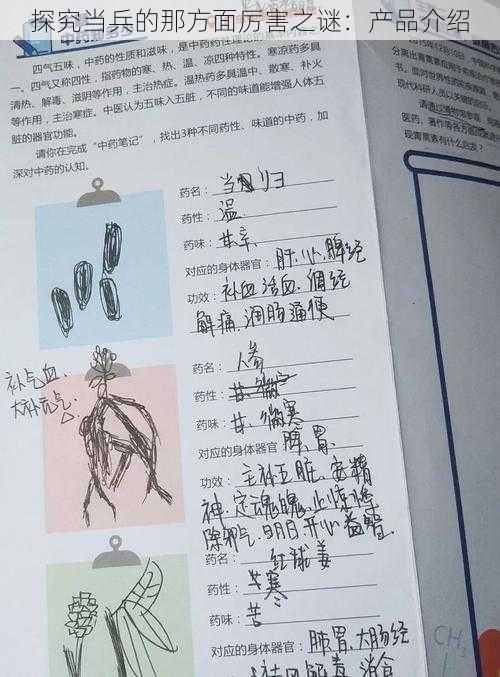 探究当兵的那方面厉害之谜：产品介绍
四气五味，中药的性质和滋味，是中药药性理论的
四气又称四性，指药物的寒、热、温、凉四种特性。寒凉药多具
清热、解毒、滋阴等作用，主治热症。温热药多具温中、散寒、补火
等作用，主治寒症。中医认为五味入五脏，不同的味道能增强人体五
脏的器官功能。
请你在完成“中药笔记”，找出3种不同药性、味道的中药，加
深对中药的认知。
药名：当归
药性：温
药味：甘辛
对应的身体器官：肝、心、脾经
功效：补血活血、调经
解痛、润肠通便
补气血、
大补元气
药名：人参
药性：
药味：甘、偏寒
对应的身体器官 脾、胃、
功效：主补五脏、安精
神、定魂魄、止惊悸
除邪气、明目、开心益智
药名：红球姜
药性：寒
药味：苦
对应的身体器官：肺胃、大肠经
解毒、消食
2015年12月10日
分离出青蒿素
现代科研人员
医药、著作
现青蒿素有什么启发？
CH₃